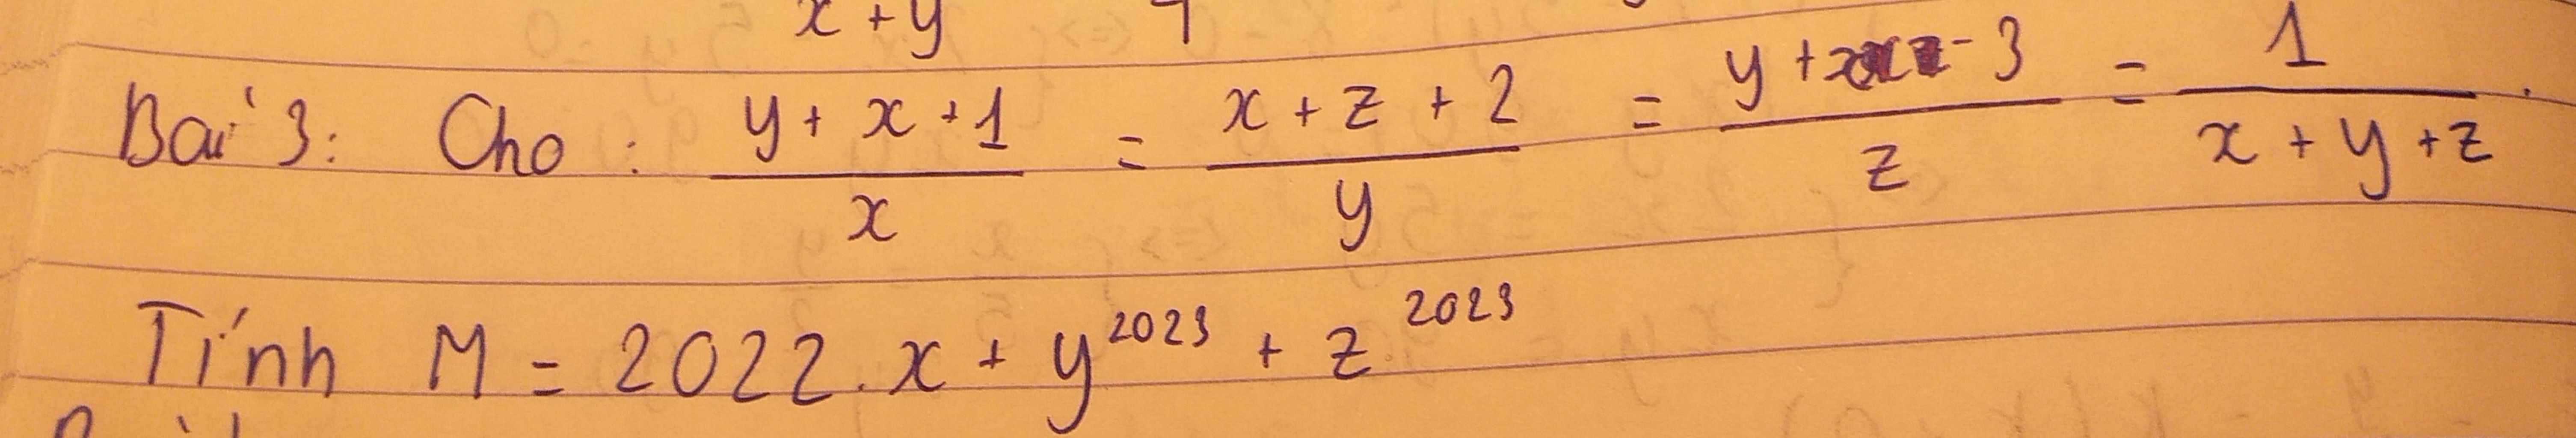 x + y
Bài 3: Cho: \frac{y + x + 1}{x} = \frac{x + z + 2}{y} = \frac{y + x - 3}{z} = \frac{1}{x + y + z}.
Tính M = 2022.x + y^{2023} + z^{2023}